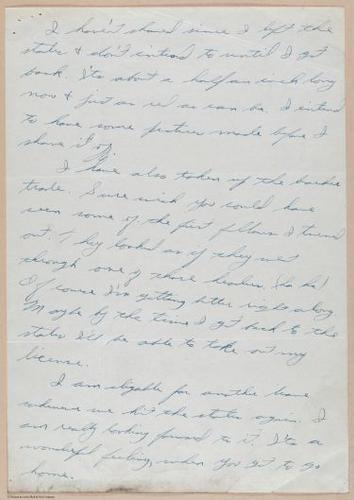 I haven't shaved since I left the
states & don't intend to until I get
back. Its about a half an inch long
now & just as red as can be. I intend
to have some pictures made before I
shave it off.
I have also taken up the barber
trade. Sure wish you could have
seen some of the first fellows I turned
out. They looked as if they went
through one of those beaters (ha ha)
Of course I'm getting better right along
Maybe by the time I get back to the
states I'll be able to take out my
license.
I am elegable for another leave
whenever we hit the states again. I
am really looking forward to it. Its a
wonderful feeling, when you get to go
home.